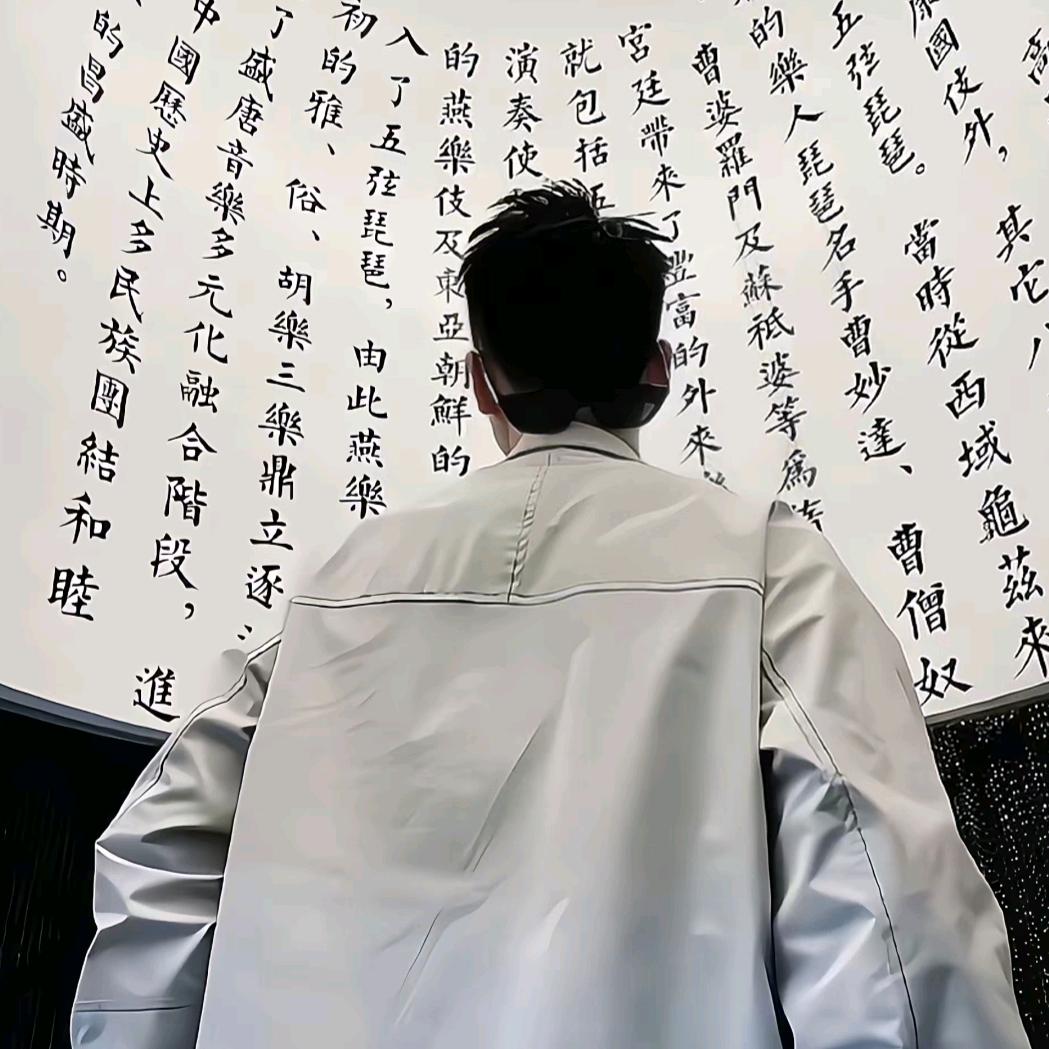 其它八
康國伎外，
來
五弦琵琶。當時從西域龜茲來
的樂人琵琶名手曹妙達、曹僧奴
曹婆羅門及蘇祗婆等爲
宮廷帶來了豐富的外來
就包括五
演奏使
的燕樂伎及東亞朝鮮的
入了五弦琵琶，由此燕樂
初的雅、俗、胡樂三樂鼎立逐
了盛唐音樂多元化融合階段，進
中國歷史上多民族團結和睦
的昌盛時期。